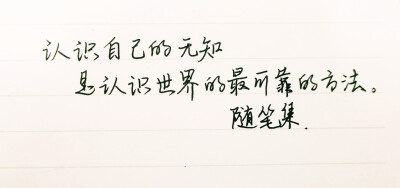 认识自己的无知
是认识世界的最可靠的方法。
随笔集.